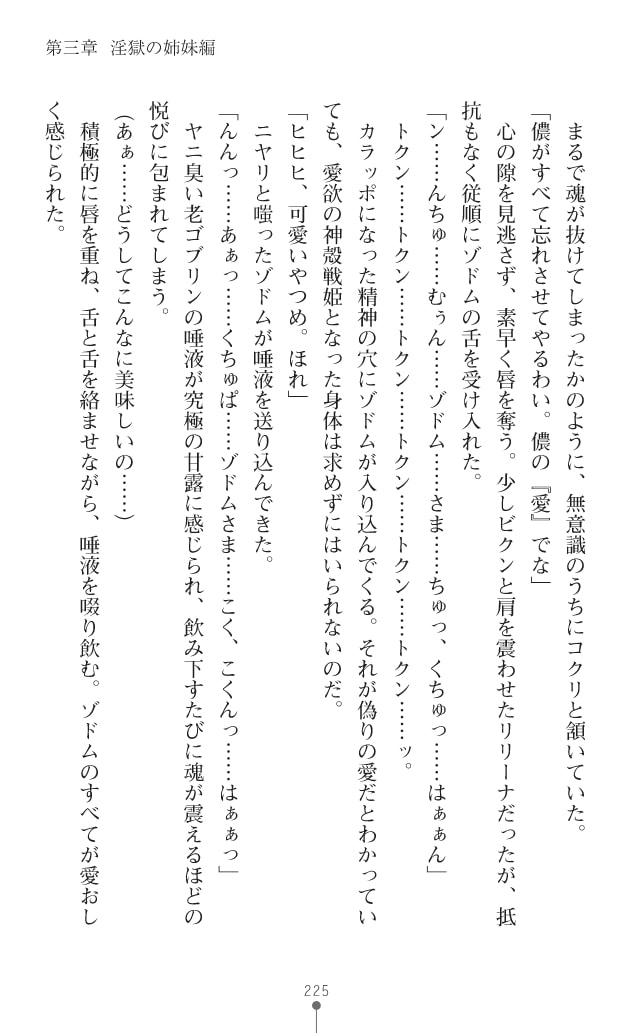 第三章 淫獄の姉妹編
まるで魂が抜けてしまったかのように、無意識のうちにコクリと頷いていた。
「儂がすべて忘れさせてやるわい。儂の『愛』でな」
心の隙を見逃さず、素早く唇を奪う。少しビクンと肩を震わせたリリーナだったが、抵
抗もなく従順にゾドムの舌を受け入れた。
「ン……んちゅ……むぅん……ゾドム……さま……ちゅっ、くちゅっ……はぁぁん」
トクン……トクン……トクン……トクン……トクン……トクン……ッ。
カラッポになった精神の穴にゾドムが入り込んでくる。それが偽りの愛だとわかってい
ても、愛欲の神殻戦姫となった身体は求めずにはいられないのだ。
「ヒヒヒ、可愛いやつめ。ほれ」
ニヤリと嗤ったゾドムが唾液を送り込んできた。
「んんっ……あぁっ……くちゅぱ……ゾドムさま……こく、こくんっ……はぁぁっ」
ヤニ臭い老ゴブリンの唾液が究極の甘露に感じられ、飲み下すたびに魂が震えるほどの
悦びに包まれてしまう。
(あぁ……どうしてこんなに美味しいの……)
積極的に唇を重ね、舌と舌を絡ませながら、唾液を啜り飲む。ゾドムのすべてが愛おし
く感じられた。
225